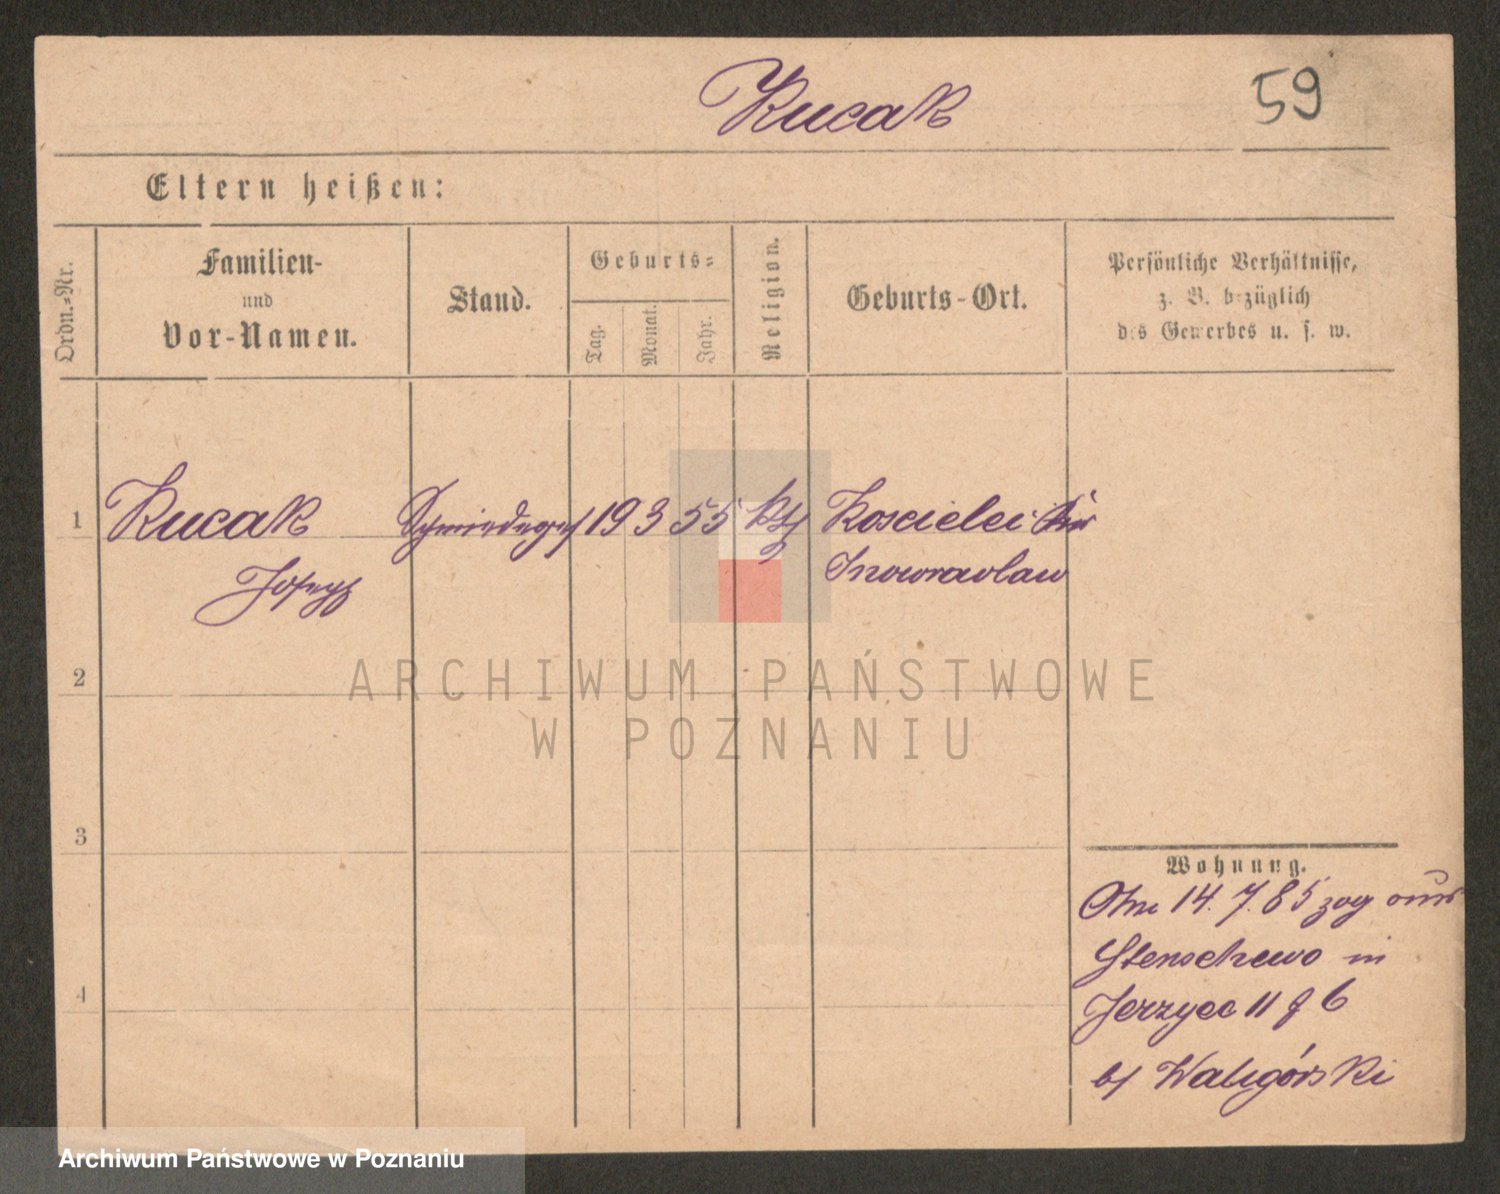 Kucak
59
Eltern heißen:
Ordn.-Nr.
Familien-
und
Vor-Namen.
Stand.
Geburts-
Tag.
Monat.
Jahr.
Religion.
Geburts-Ort.
Persönliche Verhältnisse,
z. B. bezüglich
des Gewerbes u. s. w.
1 Kucak Schmiedeges 19 3 55 kth Koscielei Kr
Josef Inowrazlaw
2
3
4
Wohnung.
Am 14. 7. 85 zog aus
Stenschewo in
Jerzyce 11 g 6
b/ Waligórski
ARCHIWUM PAŃSTWOWE
W POZNANIU
Archiwum Państwowe w Poznaniu